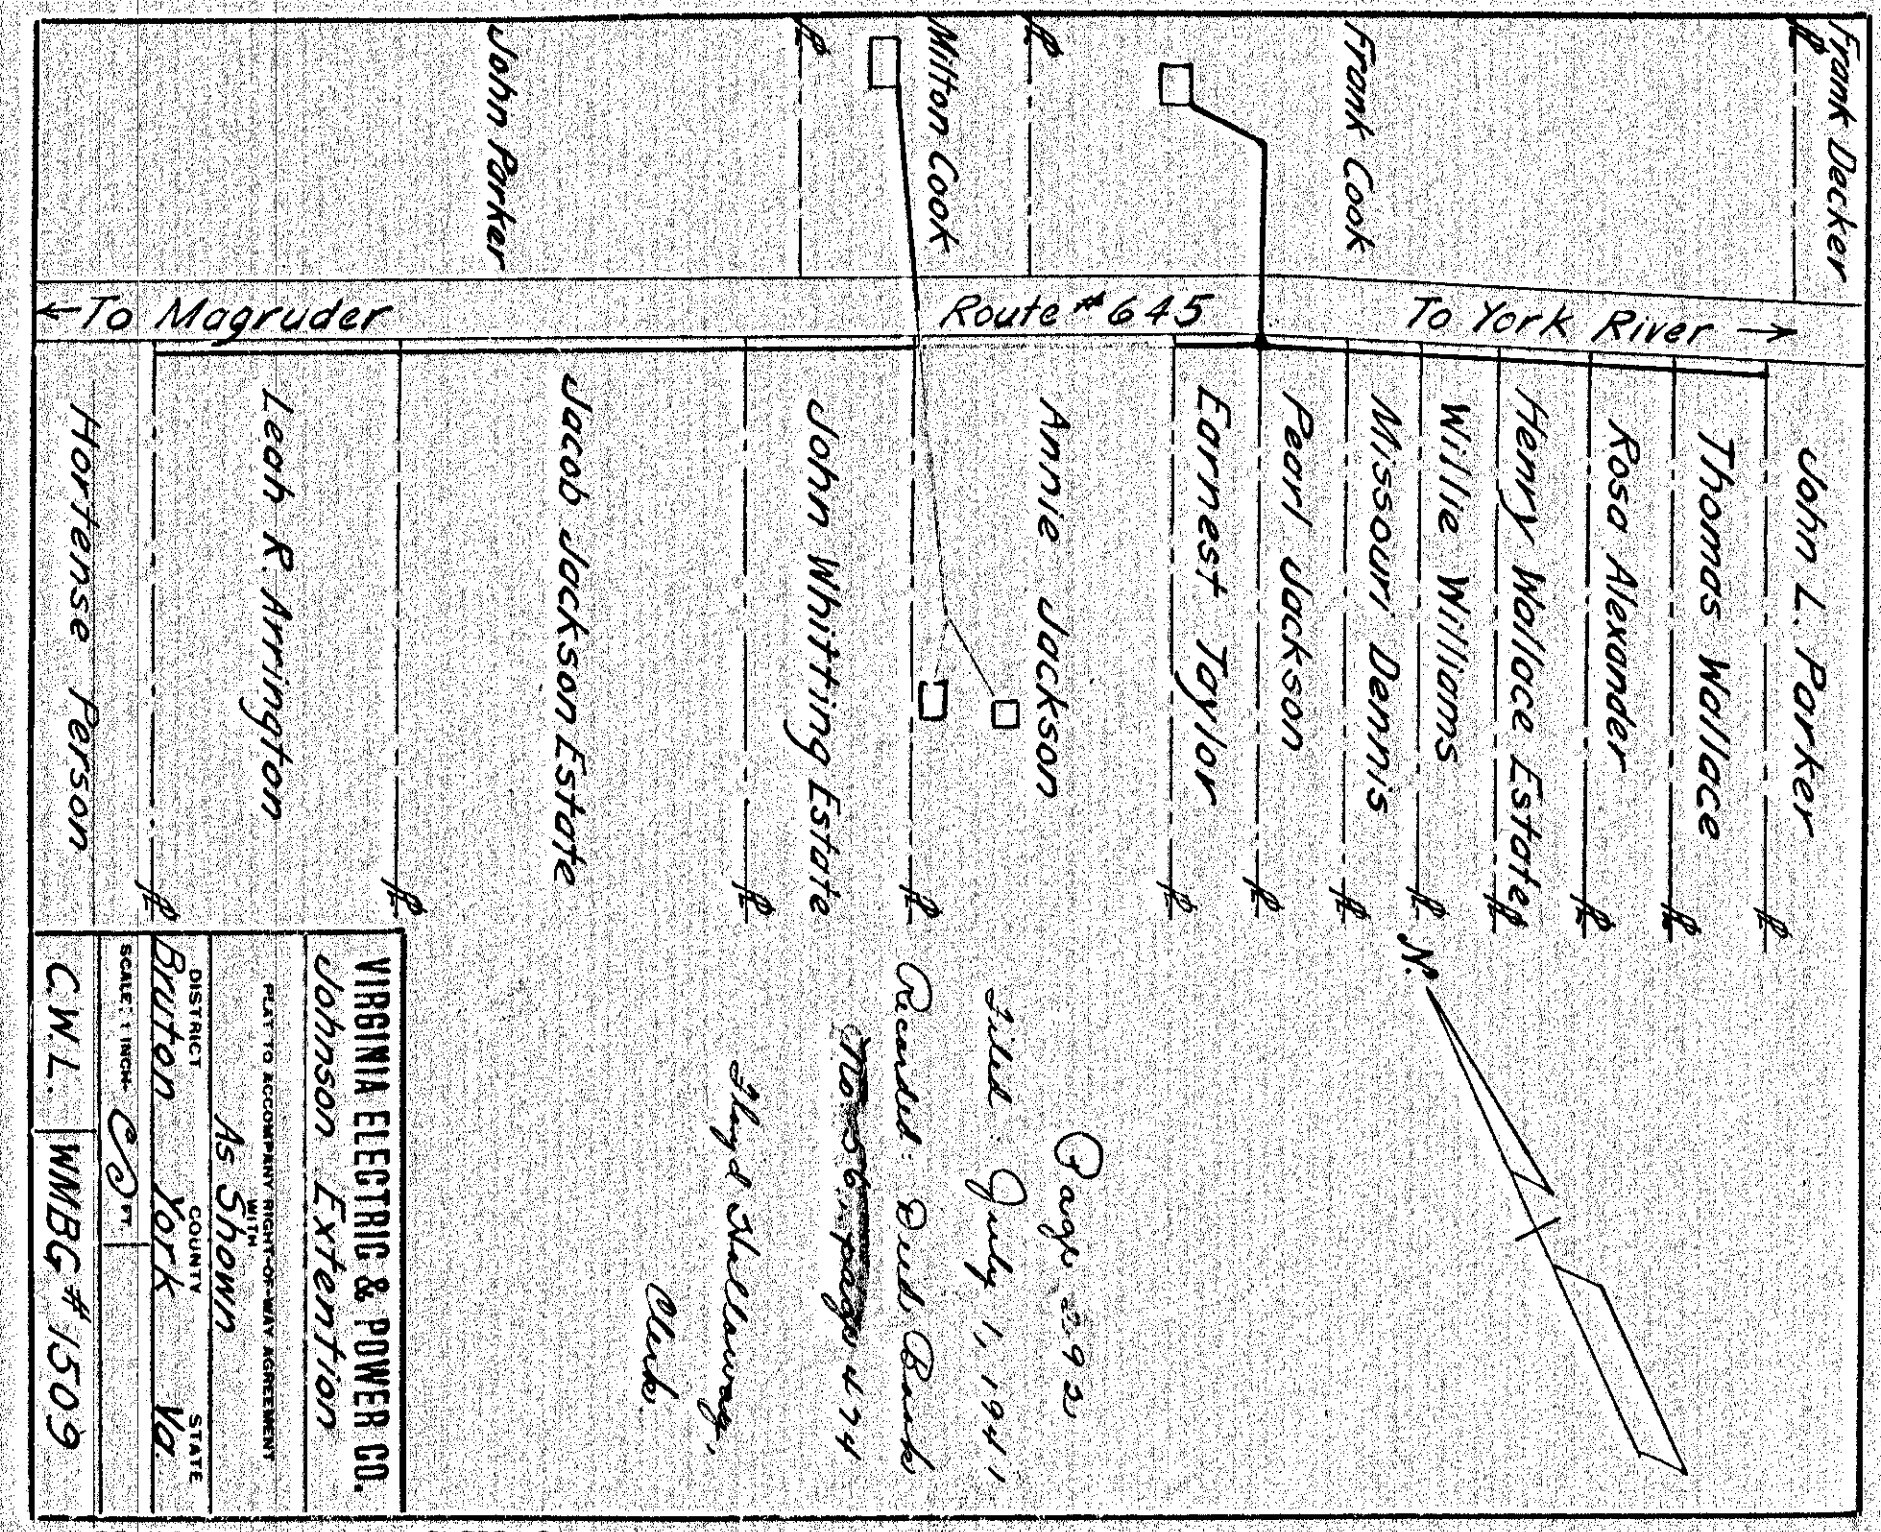 Frank Decker
Frank Cook
Milton Cook
John Parker
←To Magruder
Route #645
To York River →
John L. Parker
Thomas Wallace
Rosa Alexander
Henry Wallace Estate
Willie Williams
Missouri Dennis
Pearl Jackson
Earnest Taylor
Annie Jackson
John Whitting Estate
Jacob Jackson Estate
Leah R. Arrington
Hortense Person
N.
Page 292
Filed: July 1, 1941
Recorded: Deed Book
No 56, page 474
Floyd Holloway,
Clerk.
VIRGINIA ELECTRIC & POWER CO.
Johnson Extention
PLAT TO ACCOMPANY RIGHT-OF-WAY AGREEMENT
WITH
As Shown
DISTRICT COUNTY STATE
Bruton York Va.
SCALE: 1 INCH= FT.
C.W.L. WMBG #1509